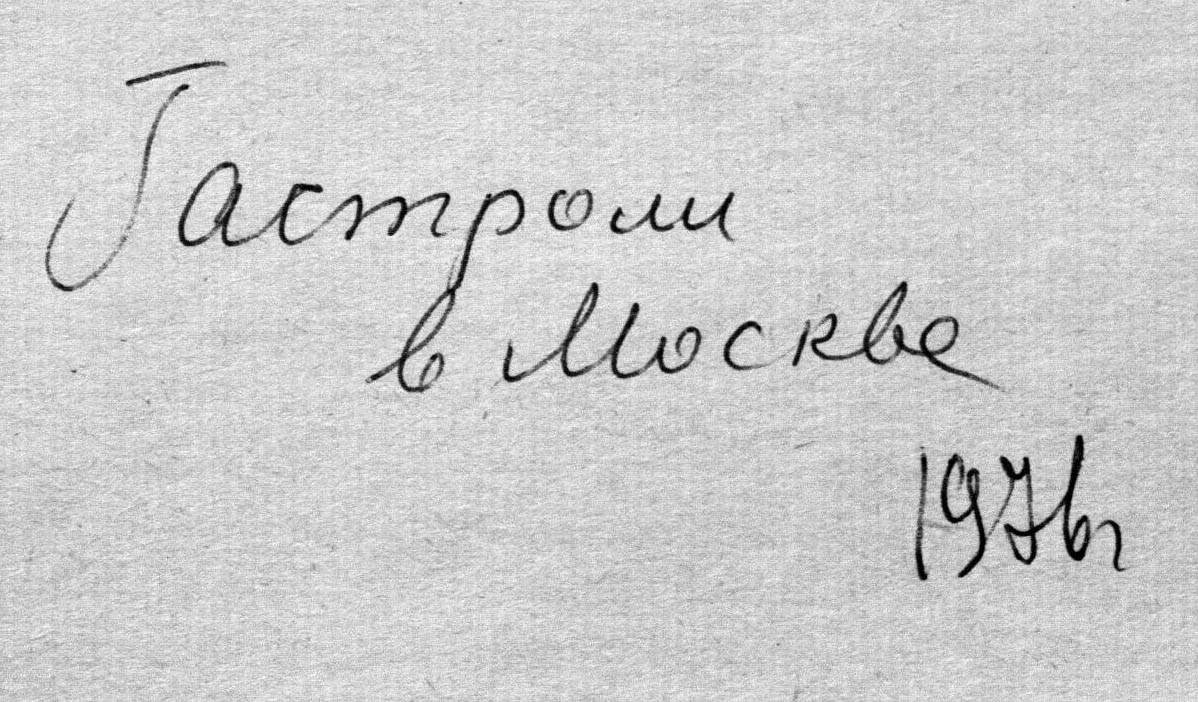 Гастроли
в Москве
1976г